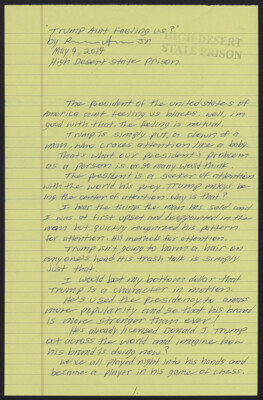 "Trump Aint Feeling us?"
by Jr.
HIGH DESERT
STATE PRISON
May 9, 2019
High Desert State Prison
The president of the united states of
America aint feeling us blacks. well, i'm
good with that. The feeling is mutual.
Trump is simply put, a clown of a
man, who craves attention like a baby.
Thats what our president's problem
as a person is. or so many would think.
The president is a seeker of attention
with the world his prey. Trump enjoys be-
ing the center of attention. why is that?
I hear the things the man has said and
I was at first upset and disappointed in the
man but quickly recognized his pattern
for attention. His methods for attention.
Trump isn't going to harm a hair on
anyone's head. His trash talk is simply
just that.
I would bet my bottom dollar that
Trump is a character in motion.
He's used the presidency to amass
more popularity and so that his brand
is more stronger than ever!
He's already licensed Donald J. Trump
out across the world and imagine how
his brand is doing now?
We've all played right into his hands and
became a player in his game of chess.
1